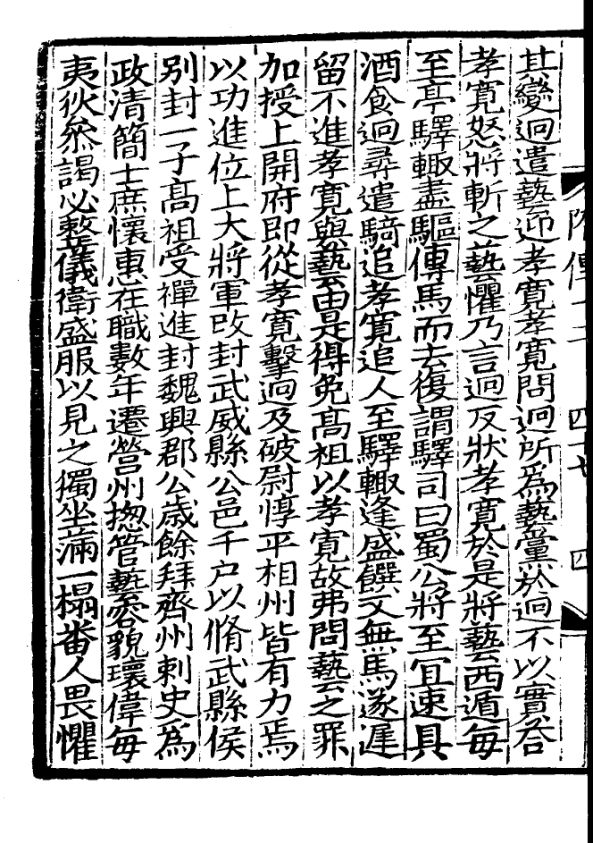 隋傳十二 四十七 四
其變迥遣藝迎孝寛孝寛問迥所爲藝黨於迥不以實荅
孝寛怒將斬之藝懼乃言迥反狀孝寛於是將藝西遁每
至亭驛輙盡驅傳馬而去復謂驛司曰蜀公將至宜速具
酒食迥尋遣騎追孝寛追人至驛輙逢盛饌又無馬遂遲
留不進孝寛與藝由是得免髙祖以孝寛故弗問藝之罪
加授上開府即從孝寛擊迥及破尉惇平相州皆有力焉
以功進位上大將軍改封武威縣公邑千户以脩武縣侯
别封一子髙祖受禪進封魏興郡公歳餘拜齊州刺史爲
政清簡士庶懷惠在職數年遷營州揔管藝容貌瓌偉每
夷狄叅謁必整儀衛盛服以見之獨坐滿一榻畨人畏懼